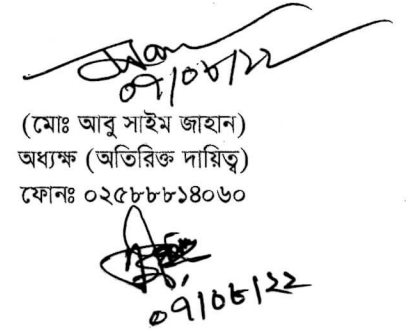 ০৭/০৮/২২
(মোঃ আবু সাইম জাহান)
অধ্যক্ষ (অতিরিক্ত দায়িত্ব)
ফোনঃ ০২৫৮৮৮১৪০৬০
০৭/০৮/২২